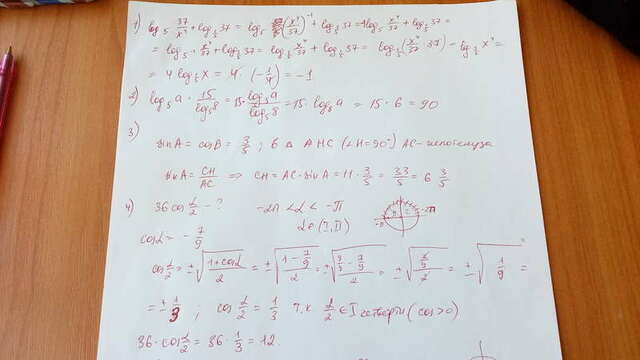 1) log₅ 37/x⁴ + log_{1/5} 37 = log₅ (x⁴/37)⁻¹ + log_{1/5} 37 =
= log_{1/5} x⁴/37 + log_{1/5} 37 = log_{1/5} (x⁴/37 · 37) = log_{1/5} x⁴ =
= 4 log_{1/5} x = 4 · (-1/4) = -1
2) log₅ a · 15/log₅ 8 = 15 · log₅ a/log₅ 8 = 15 · log₈ a = 15 · 6 = 90
3)
sin A = cos B = 3/5 ; в Δ AHC (∠H=90°) AC-гипотенуза
sin A = CH/AC ⇒ CH = AC · sin A = 11 · 3/5 = 33/5 = 6 3/5
4) 36 cos α/2 - ? -2π < α < -π
cos α = - 7/9 α ∈ (I, II) -π -2π
cos α/2 = ±√((1+cos α)/2) = ±√((1 - 7/9)/2) = ±√((9/9 - 7/9)/2) = ±√((2/9)/2) = ±√(1/9) =
= ± 1/3 ; cos α/2 = 1/3 т.к α/2 ∈ I четверти (cos>0)
36 · cos α/2 = 36 · 1/3 = 12.